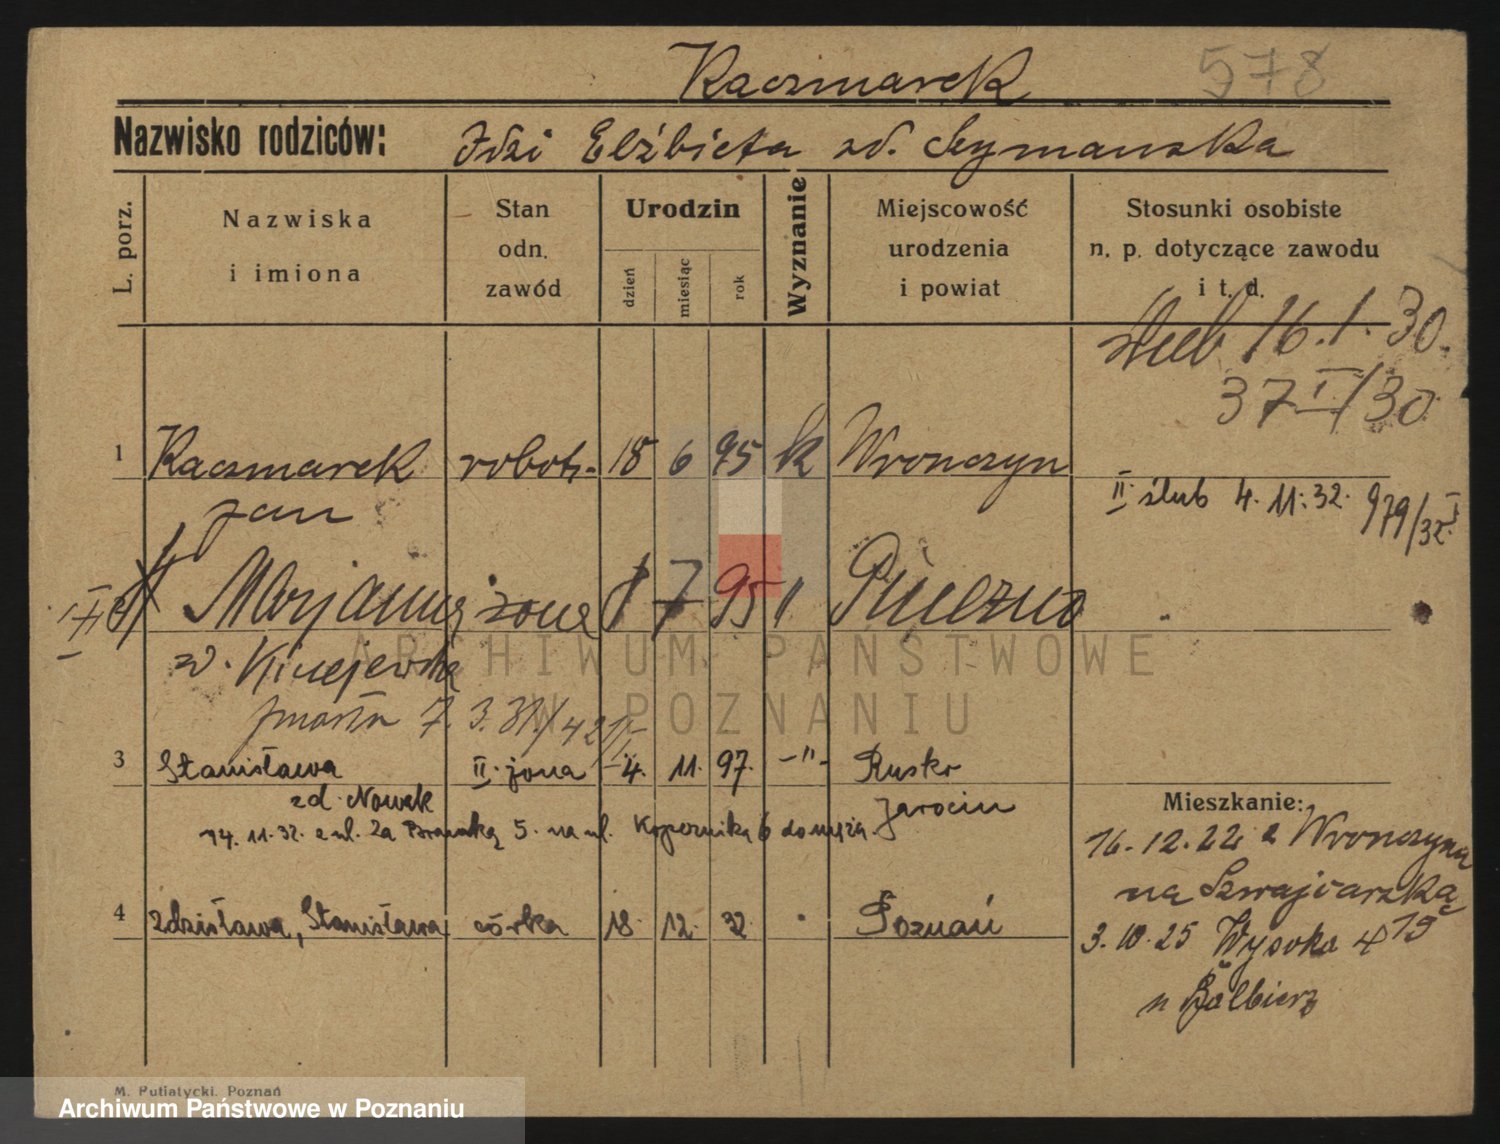 Kaczmarek 578
Nazwisko rodziców: Idzi Elżbieta zd. Szymanska
L. porz.
Nazwiska
i imiona
Stan
odn.
zawód
Urodzin
dzień
miesiąc
rok
Wyznanie
Miejscowość
urodzenia
i powiat
Stosunki osobiste
n. p. dotyczące zawodu
i t. d.
ślub 16.1.30.
37 I/30
1 Kaczmarek robotn. 18 6 95 k Wronczyn
Jan
II. ślub 4.11.32. 979/32 I
Marjanna żona 7 95 "
zd.
zmarła 7. 3. 31./421/I
3 Stanisława II. żona 4. 11. 97. -"- Rusko
zd. Nowak Jarocin
14. 11. 32. z ul. 5. na ul. Kopernika 6 do męża
4 Zdzisława, Stanisława córka 18. 12. 32. Poznań
Mieszkanie:
16.12.22 z Wronczyna
na Szwajcarską
3.10.25 Wysoka 4 19
u Balbierz
M. Putiatycki. Poznań
ARCHIWUM PAŃSTWOWE
W POZNANIU
Archiwum Państwowe w Poznaniu